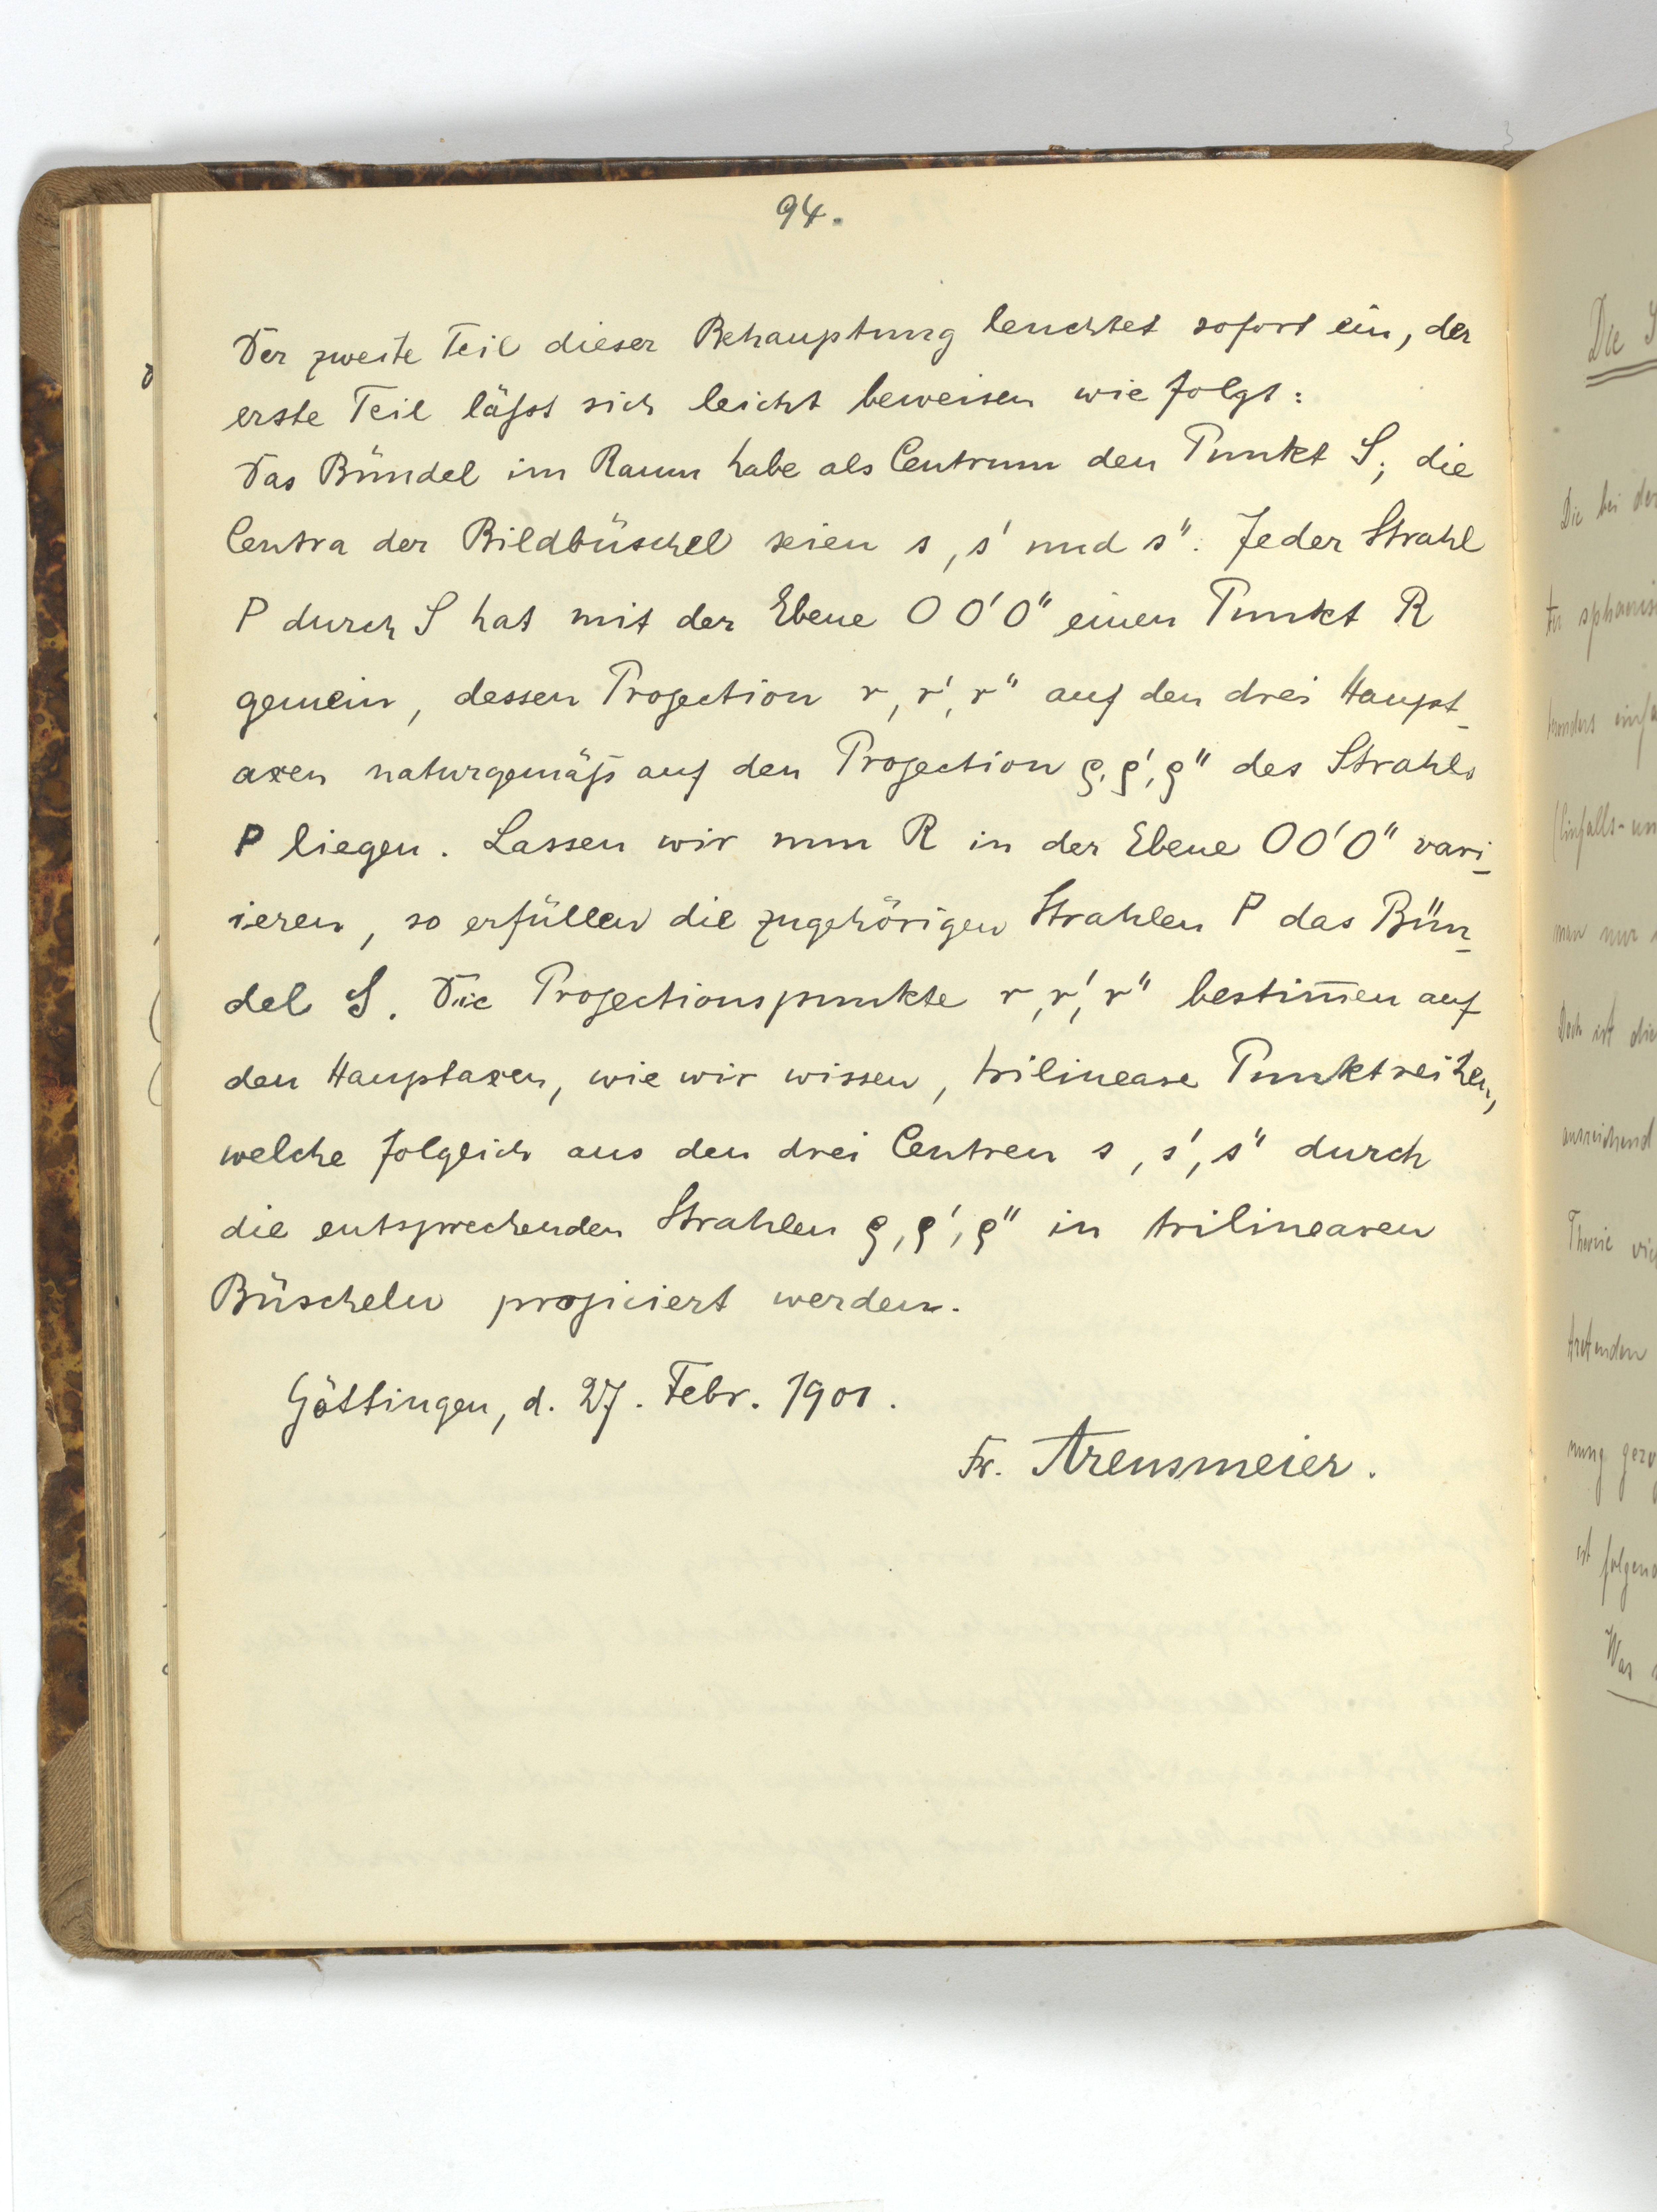 94.
Der zweite Teil dieser Behauptung leuchtet sofort ein, der
erste Teil läßst sich leicht beweisen wie folgt:
Das Bündel im Raum habe als Centrum den Punkt S; die
Centra der Bildbüschel seien s, s' und s". Jeder Strahl
P durch S hat mit der Ebene O O' O" einen Punkt R
gemein, dessen Projection r, r', r" auf den drei Haupt-
axen naturgemäß auf den Projection ϱ, ϱ', ϱ" des Strahls
P liegen. Lassen wir nun R in der Ebene O O' O" vari-
ieren, so erfüllen die zugehörigen Strahlen P das Bün-
del S. Die Projectionspunkte r, r', r" bestim̅en auf
den Hauptaxen, wie wir wissen, trilineare Punktreihen,
welche folglich aus den drei Centren s, s', s" durch
die entsprechenden Strahlen ϱ, ϱ', ϱ" in trilinearen
Büscheln projiciert werden.
Göttingen, d. 27. Febr. 1901.
Fr. Arensmeier.
Die
Die bei der
man nur
Doch ist die
ausreichend
Theorie
tretenden
ist folgend
Was